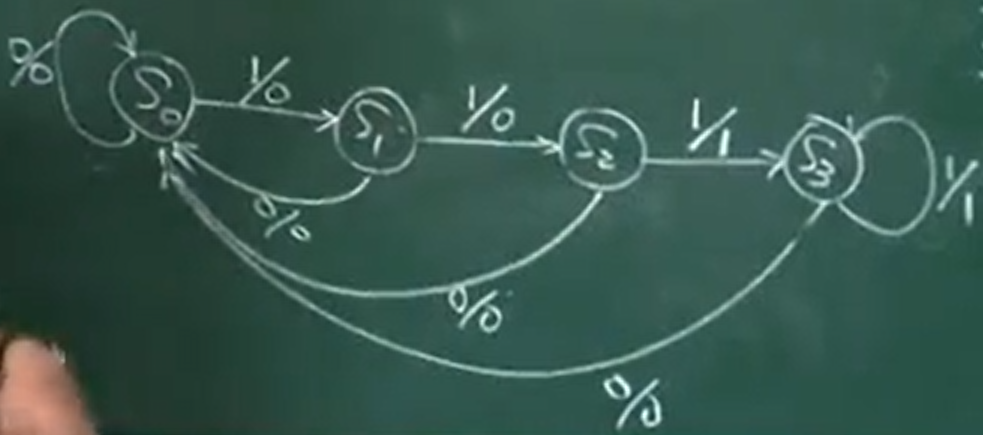 0/0
S0
1/0
S1
1/0
S2
1/1
S3
1/1
0/0
0/0
0/0